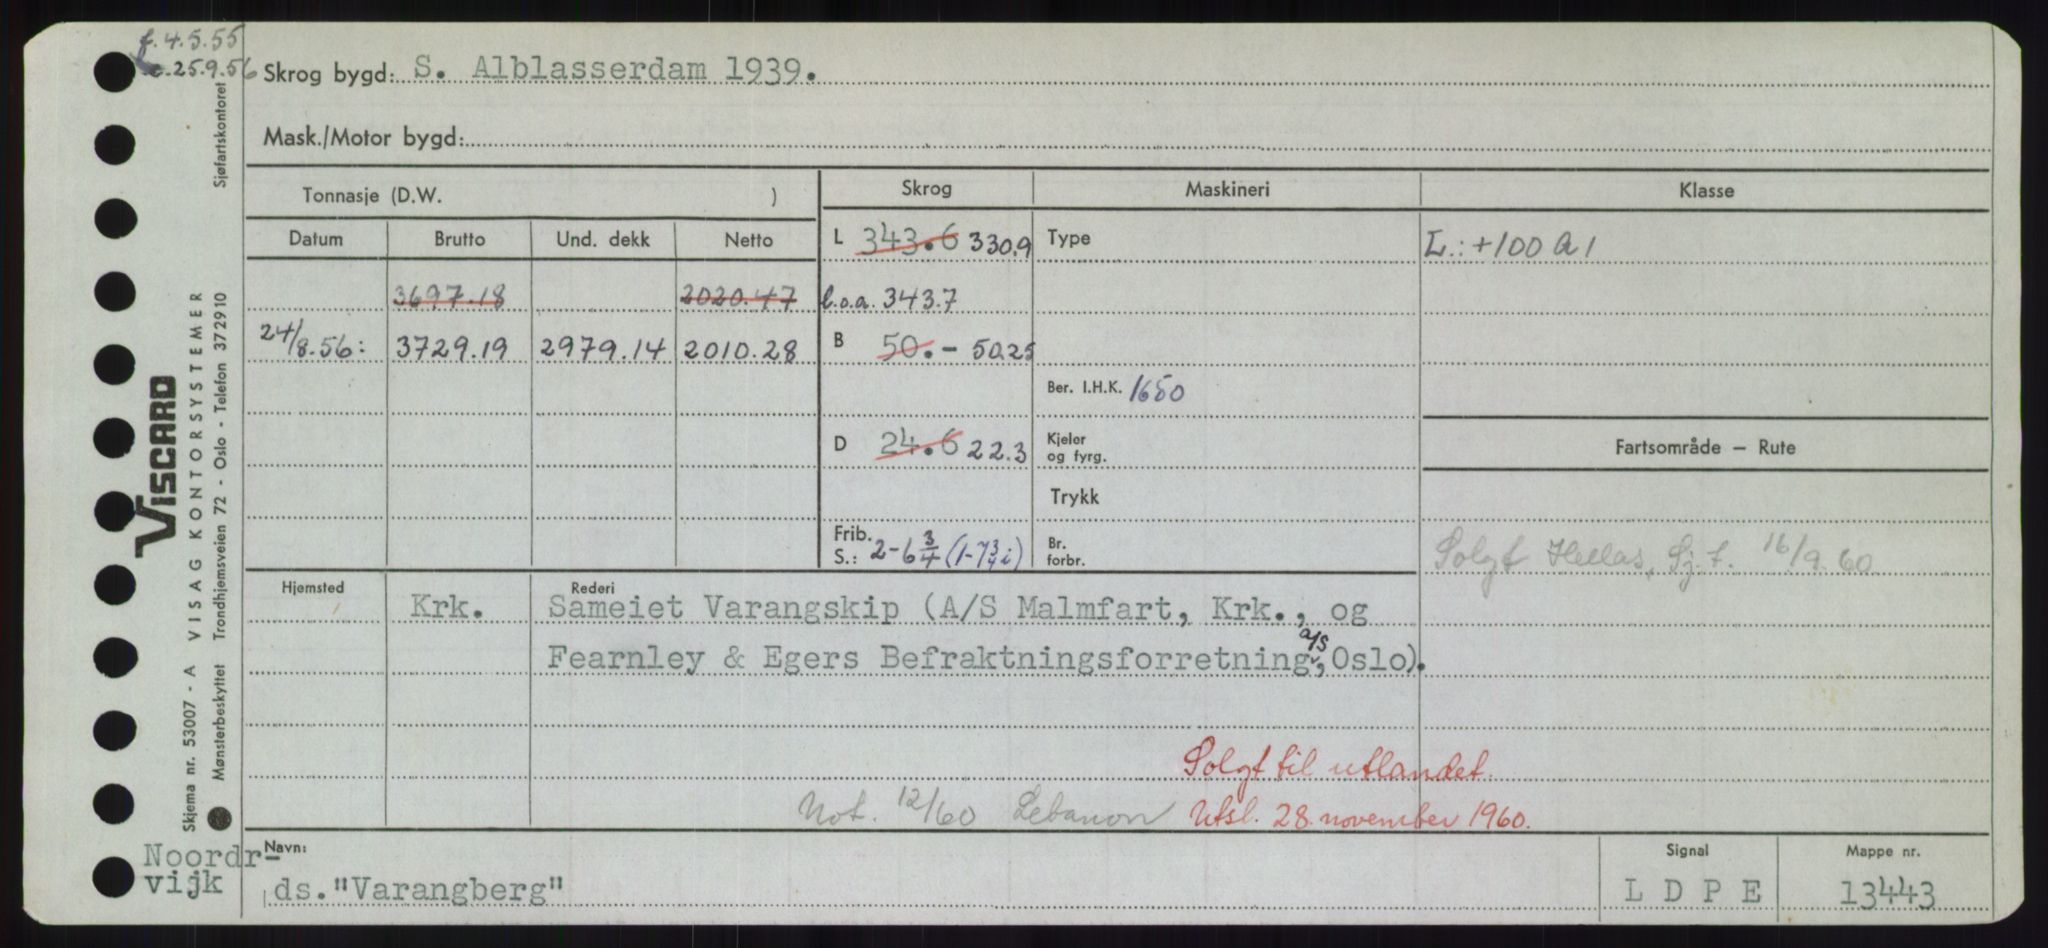 f. 4.5.55
25.9.56
Skrog bygd: S. Alblasserdam 1939.
Mask./Motor bygd:
Tonnasje (D.W. )
Skrog
Maskineri
Klasse
Datum Brutto Und. dekk Netto
L 343.6 330.9
Type
L.: +100 A 1
3697.18 2020.47
l.o.a. 343.7
24/8.56: 3729.19 2979.14 2010.28
B 50.- 50.25
Ber. I.H.K. 1650
D 24.6 22.3
Kjeler
og fyrg.
Fartsområde – Rute
Trykk
Frib.
S.: 2-6 3/4 (1-7 3/4 i)
Br.
forbr.
Solgt Hellas, Sj. t. 16/9.60
Hjemsted
Rederi
Krk. Sameiet Varangskip (A/S Malmfart, Krk., og
Fearnley & Egers Befraktningsforretning A/S, Oslo).
Solgt til utlandet.
Not. 12/60 Lebanon Utsl. 28. november 1960.
Noordr-
vijk
Navn:
ds. "Varangberg"
Signal
L D P E
Mappe nr.
13443
VISCARD
Skjema nr. 53007 - A VISAG KONTORSYSTEMER
Mønsterbeskyttet Trondhjemsveien 72 - Oslo - Telefon 372910 Sjøfartskontoret